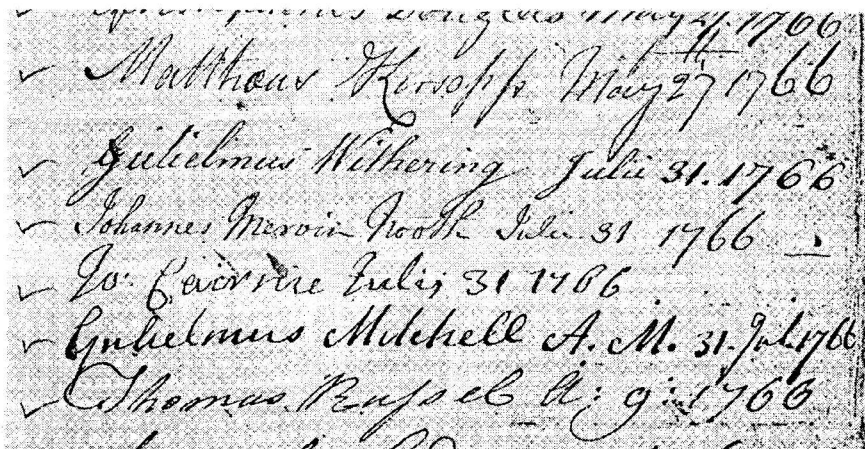 Douglas May 27. 1766
Matthæus Kirsopp May 27th 1766
Gulielmus Withering Julii 31. 1766
Johannes Mervin Nooth Julii 31 1766
Jo: Julij 31 1766
Gulielmus Mitchell A. M. 31. Jul. 1766
Thomas Russel A: 9: 1766